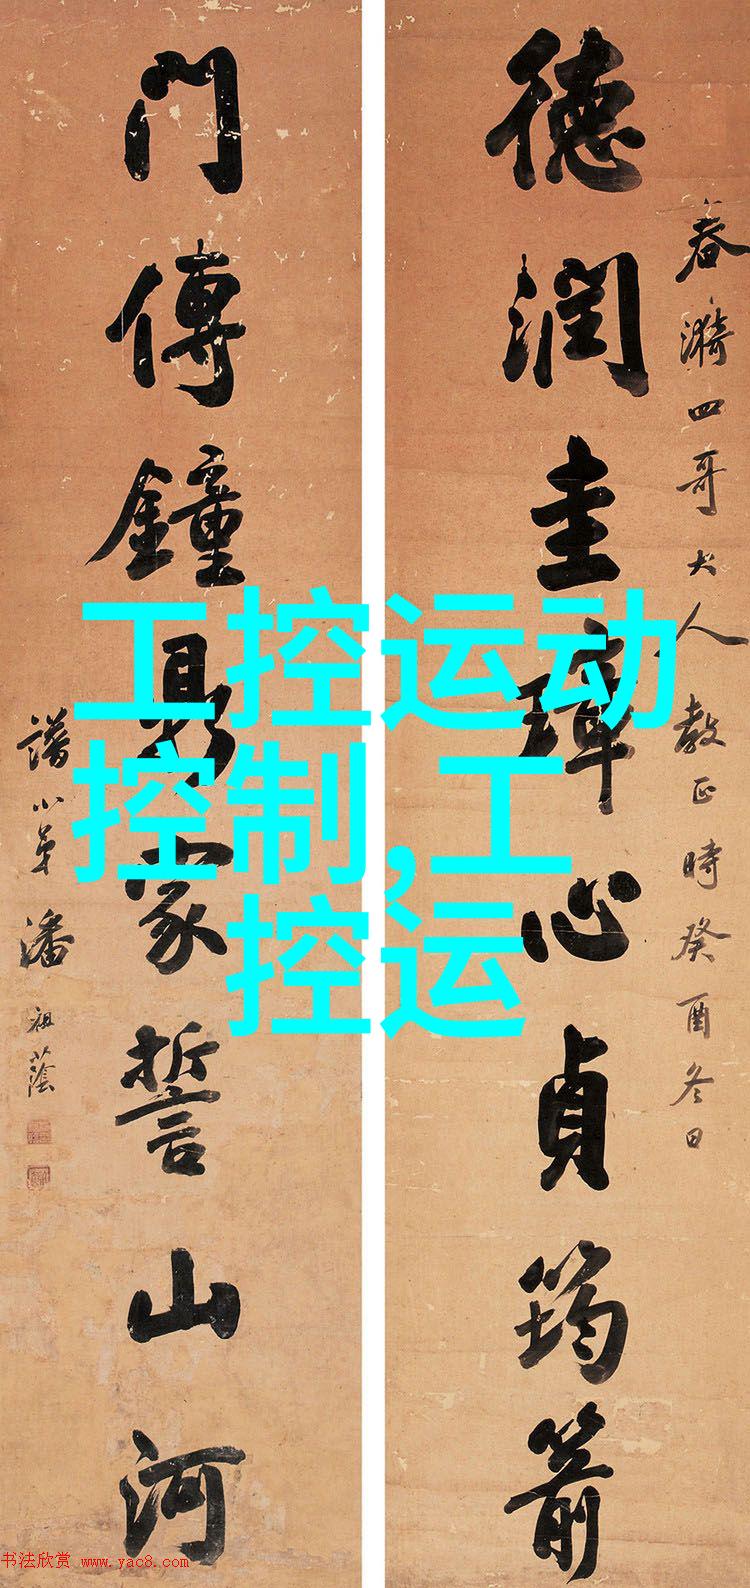 春漪四哥大人教正時癸酉冬日
德潤圭璋心貞筠箭
門傳鐘鼎家誓山河
譜小弟潘祖蔭
工控运动
控制,工
控运
书法欣赏 www.yac8.com